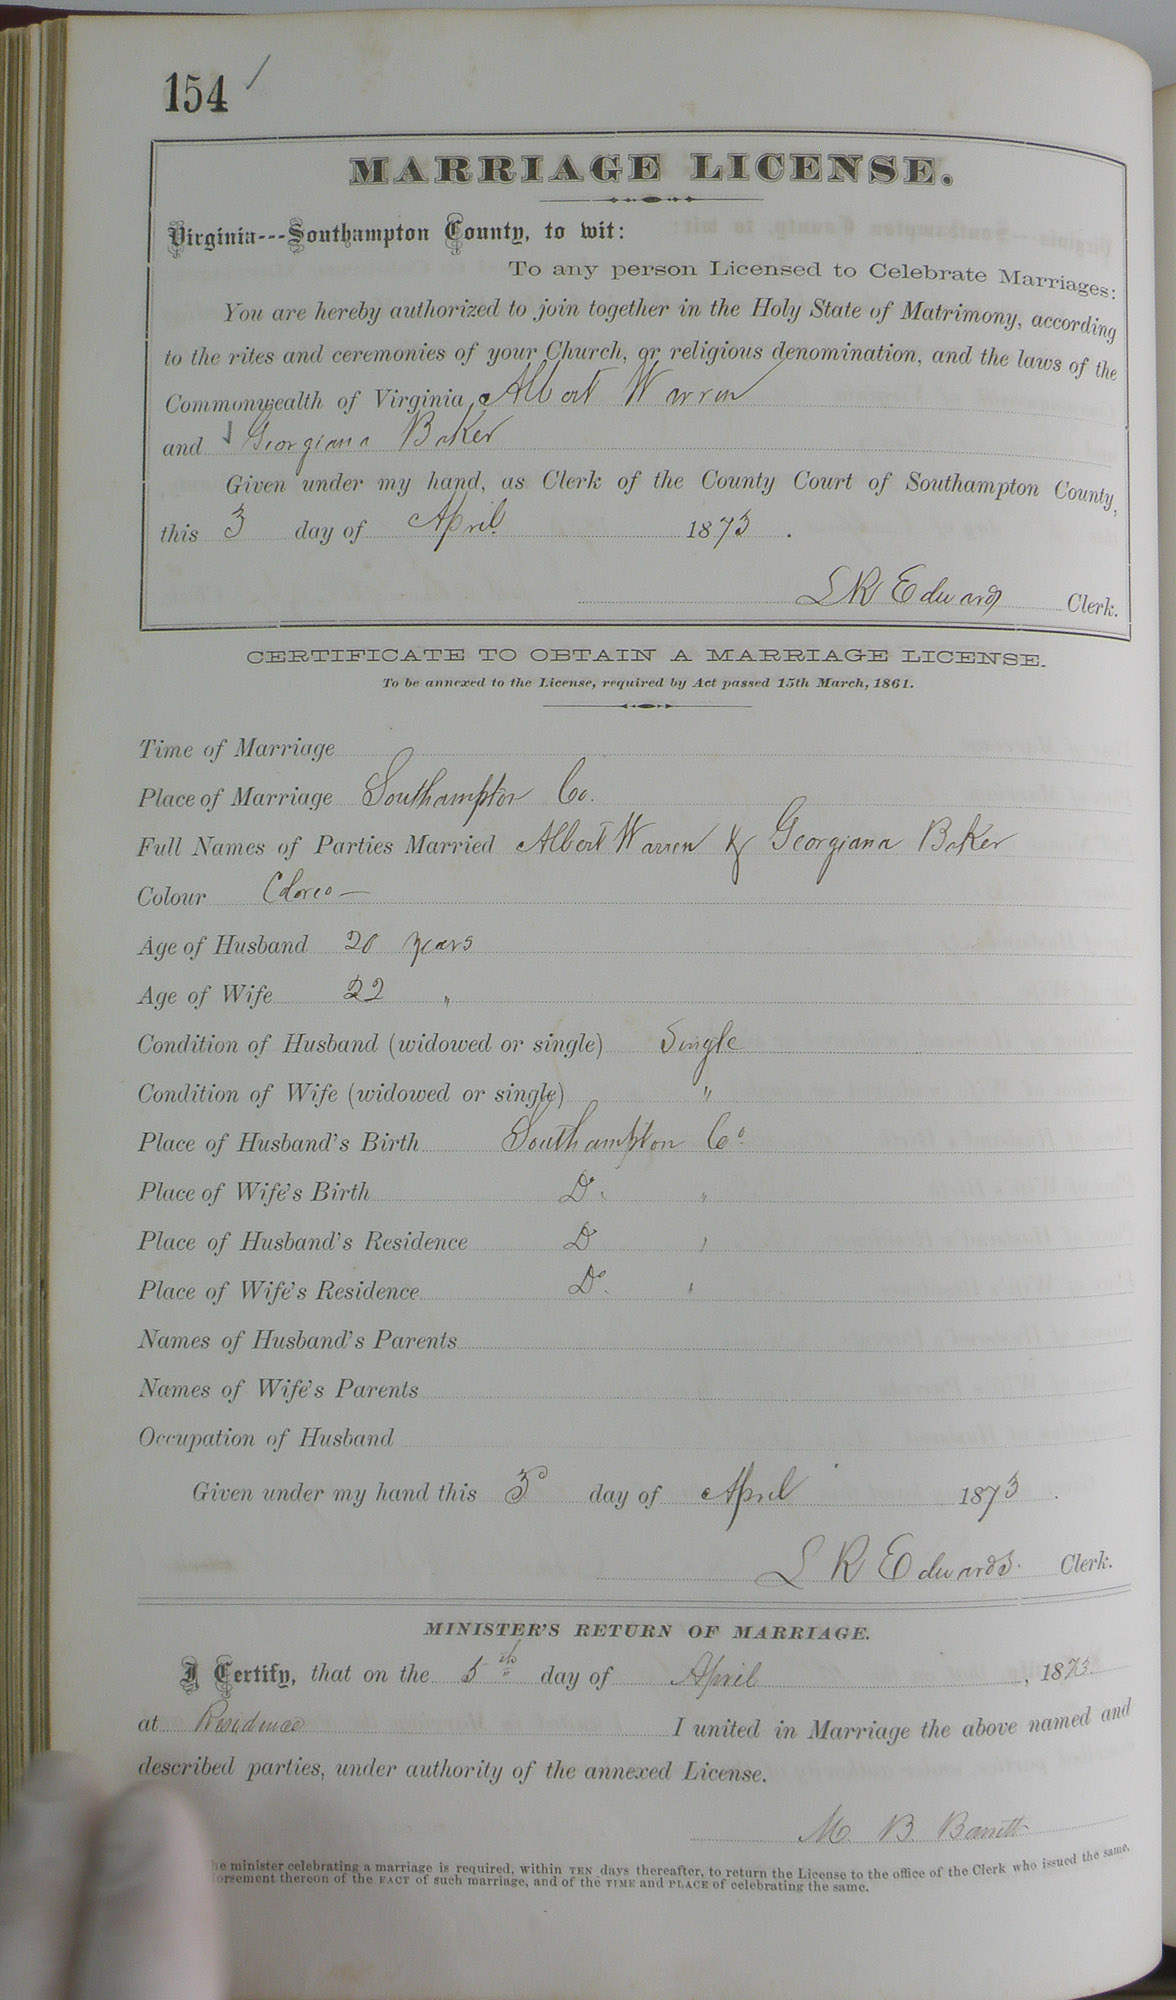 154
MARRIAGE LICENSE.
Virginia---Southampton County, to wit:
To any person Licensed to Celebrate Marriages:
You are hereby authorized to join together in the Holy State of Matrimony, according
to the rites and ceremonies of your Church, or religious denomination, and the laws of the
Commonwealth of Virginia, Albert Warren
and Georgiana Baker
Given under my hand, as Clerk of the County Court of Southampton County,
this 3 day of April 1873.
L R Edwards Clerk.
CERTIFICATE TO OBTAIN A MARRIAGE LICENSE.
To be annexed to the License, required by Act passed 15th March, 1861.
Time of Marriage
Place of Marriage Southampton Co.
Full Names of Parties Married Albert Warren & Georgiana Baker
Colour Colored
Age of Husband 20 years
Age of Wife 22 "
Condition of Husband (widowed or single) Single
Condition of Wife (widowed or single) "
Place of Husband's Birth Southampton Co
Place of Wife's Birth Do. "
Place of Husband's Residence Do "
Place of Wife's Residence Do. "
Names of Husband's Parents
Names of Wife's Parents
Occupation of Husband
Given under my hand this 3d day of April 1873.
L R Edwards. Clerk.
MINISTER'S RETURN OF MARRIAGE.
I Certify, that on the 5th day of April, 1873.
at Residence I united in Marriage the above named and
described parties, under authority of the annexed License.
M. B. Barrett
he minister celebrating a marriage is required, within TEN days thereafter, to return the License to the office of the Clerk who issued the same,
orsement thereon of the FACT of such marriage, and of the TIME and PLACE of celebrating the same.